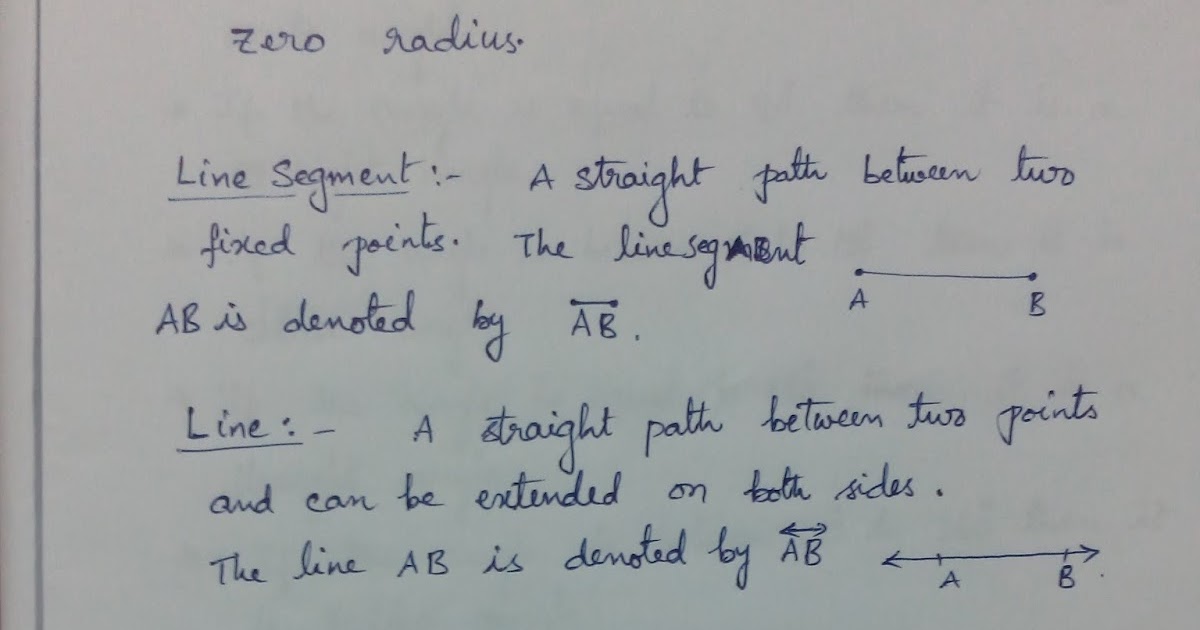 zero radius.
Line Segment :- A straight path between two
fixed points. The line segment
A B
AB is denoted by AB.
Line : - A straight path between two points
and can be extended on both sides.
The line AB is denoted by AB
A B